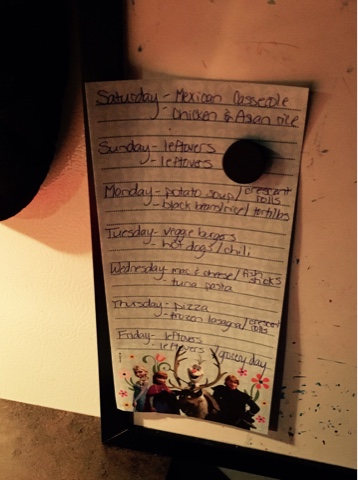 Saturday - Mexican Casserole
- Chicken & Asian rice
Sunday - leftovers
- leftovers
Monday - potato soup / crescent rolls
- black beans/rice / tortillas
Tuesday - veggie burgers
- hot dogs / chili
Wednesday - mac & cheese / fish sticks
- tuna pasta
Thursday - pizza
- frozen lasagna / crescent rolls
Friday - leftovers
- leftovers / grocery day